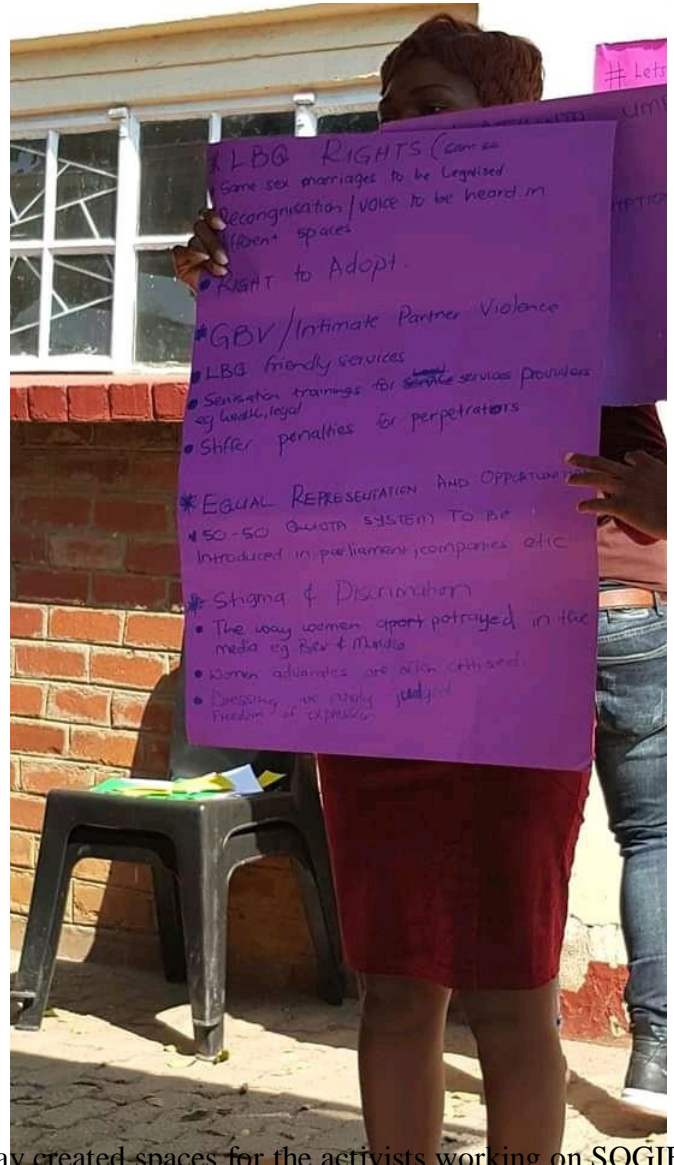 * LBQ RIGHTS (Same se
• Same sex marriages to be Legalised
• Recongnisation / voice to be heard in
different spaces
• RIGHT to Adopt.
* GBV / Intimate Partner Violence
• LBQ friendly services
• Sensisation trainings for services providers
eg health, legal
• Stiffer penalties for perpetrators
* EQUAL REPRESENTATION AND OPPORTUNITI
• 50-50 QUOTA SYSTEM TO BE
Introduced in parliament, companies etic
* Stigma & Discrimation
• The way women potrayed in the
media eg Bev &
• Women advocates are often critised.
• Dressing judged
Freedom of expression
# Lets
UMP
PTION
ay created spaces for the activists working on SOGIE